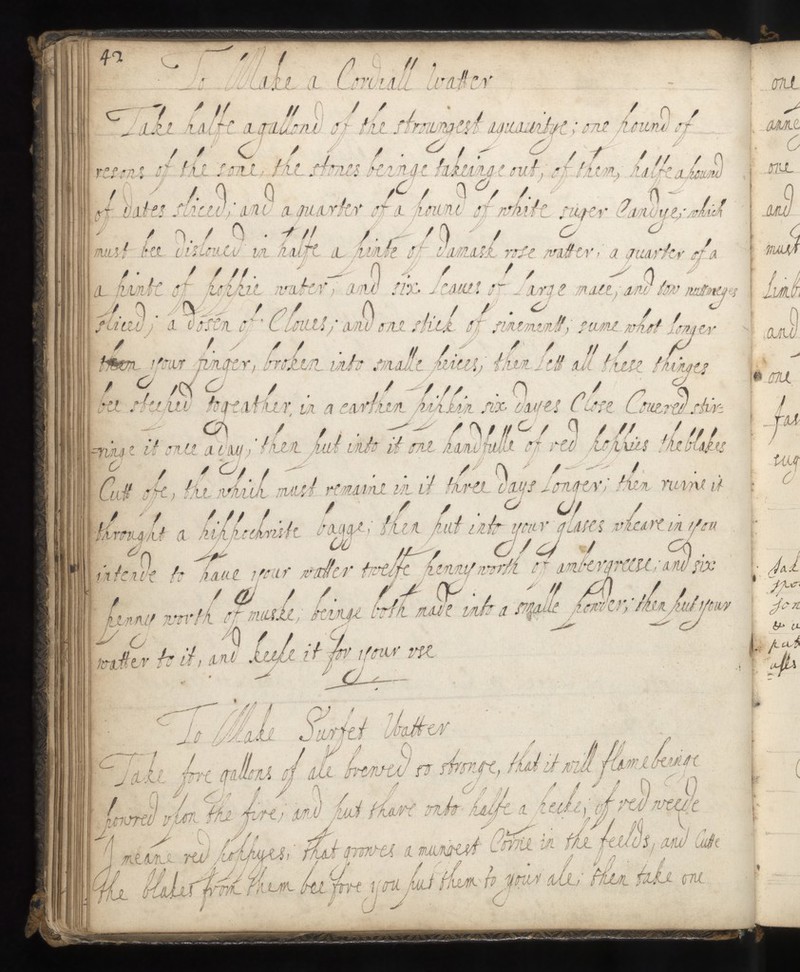 42
To Make a Cordiall Watter
Take halfe a gallond of the stroungest aquauitye; one pound of
resons of the sone, the stones beinge takeinge out, of them, halfe a pound
of dates sliced; and a quarter of a pound of white suger Candye; which
must bee disloued in halfe a pinte of Damask rose watter, a quarter of a
a pinte of poppie water, and six leaues of large mace, and tow nutmeges
sliced; a dosen of Cloues; and one stick of sinementt, sume whot longer
then your finger, broken into smalle peices; then lett all these thinges
bee steeped togeather, in a earthen pipkin six dayes Close Couered, stir=
=ringe it once a day; then put into it one handfulle of red poppies the blakes
Cutt ofe, the which must remaine in it three days longer; then runne it
throught a hippochriste bagge; then put into your glases wheare in you
intende to haue your watter twelfe pennyworth of ambergreese; and six
penny worth of muske, beinge both made into a smalle ponder; then put your
watter to it, and keepe it for your vse
To Make Surfet Watter
Take fore gallons of ale brewed so stronge, that it will flame beinge
powred vpon the fire; and put thare vnto halfe a pecke, of red weede
I meane red poppyes, that growes a mungest Corne in the feelds, and Cutte
the blakes from them bee fore you put them to your ale; then take one
one
anne
one
and
must
and
one